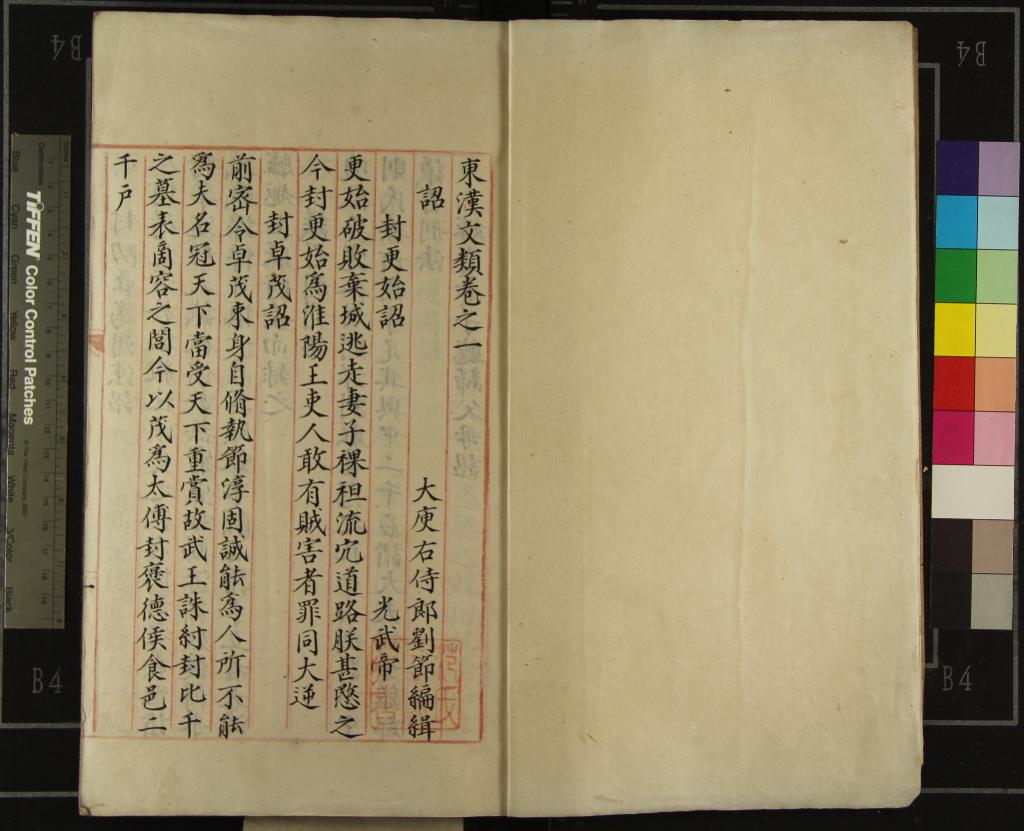 東漢文類卷之一
大庾右侍郎劉節編緝
詔
封更始詔 光武帝
更始破敗棄城逃走妻子裸袒流宂道路朕甚愍之
今封更始爲淮陽王吏人敢有賊害者罪同大逆
封卓茂詔
前宻令卓茂束身自脩執節淳固誠能爲人所不能
爲夫名冠天下當受天下重賞故武王誅紂封比千
之墓表商容之閭今以茂爲太傅封褒德侯食邑二
千戸
一
B4
B4
B4
B4
TIFFEN Color Control Patches
Blue
Cyan
Green
Yellow
Red
Magenta
White
3/Color
Black